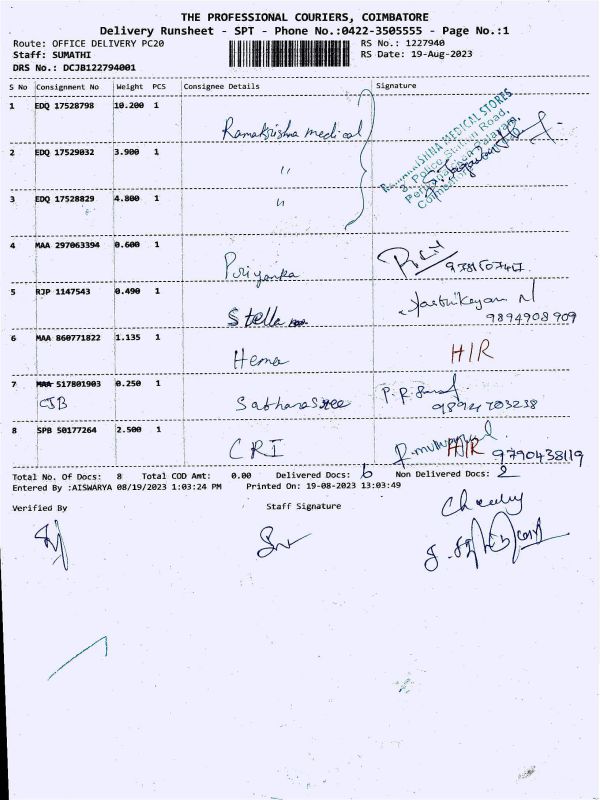 THE PROFESSIONAL COURIERS, COIMBATORE
Delivery Runsheet - SPT - Phone No.:0422-3505555 - Page No.:1
Route: OFFICE DELIVERY PC20 RS No.: 1227940
Staff: SUMATHI RS Date: 19-Aug-2023
DRS No.: DCJB122794001
S No Consignment No Weight PCS Consignee Details Signature
1 EDQ 17528798 10.200 1 Ramakrishna medical
RAMAKRISHNA MEDICAL STORES
3, Police Station Road,
2 EDQ 17529032 3.900 1 "
3 EDQ 17528829 4.800 1 "
4 MAA 297063394 0.600 1 Priyanka
5 RJP 1147543 0.490 1 Stella Karthikeyan N
9894908909
6 MAA 860771822 1.135 1 Hema H/R
7 MAA 517801903 0.250 1 Sabharasree
CJB 9894703238
8 SPB 50177264 2.500 1 CRI H/R 9790438119
Total No. Of Docs: 8 Total COD Amt: 0.00 Delivered Docs: 6 Non Delivered Docs: 2
Entered By :AISWARYA 08/19/2023 1:03:24 PM Printed On: 19-08-2023 13:03:49
Verified By Staff Signature